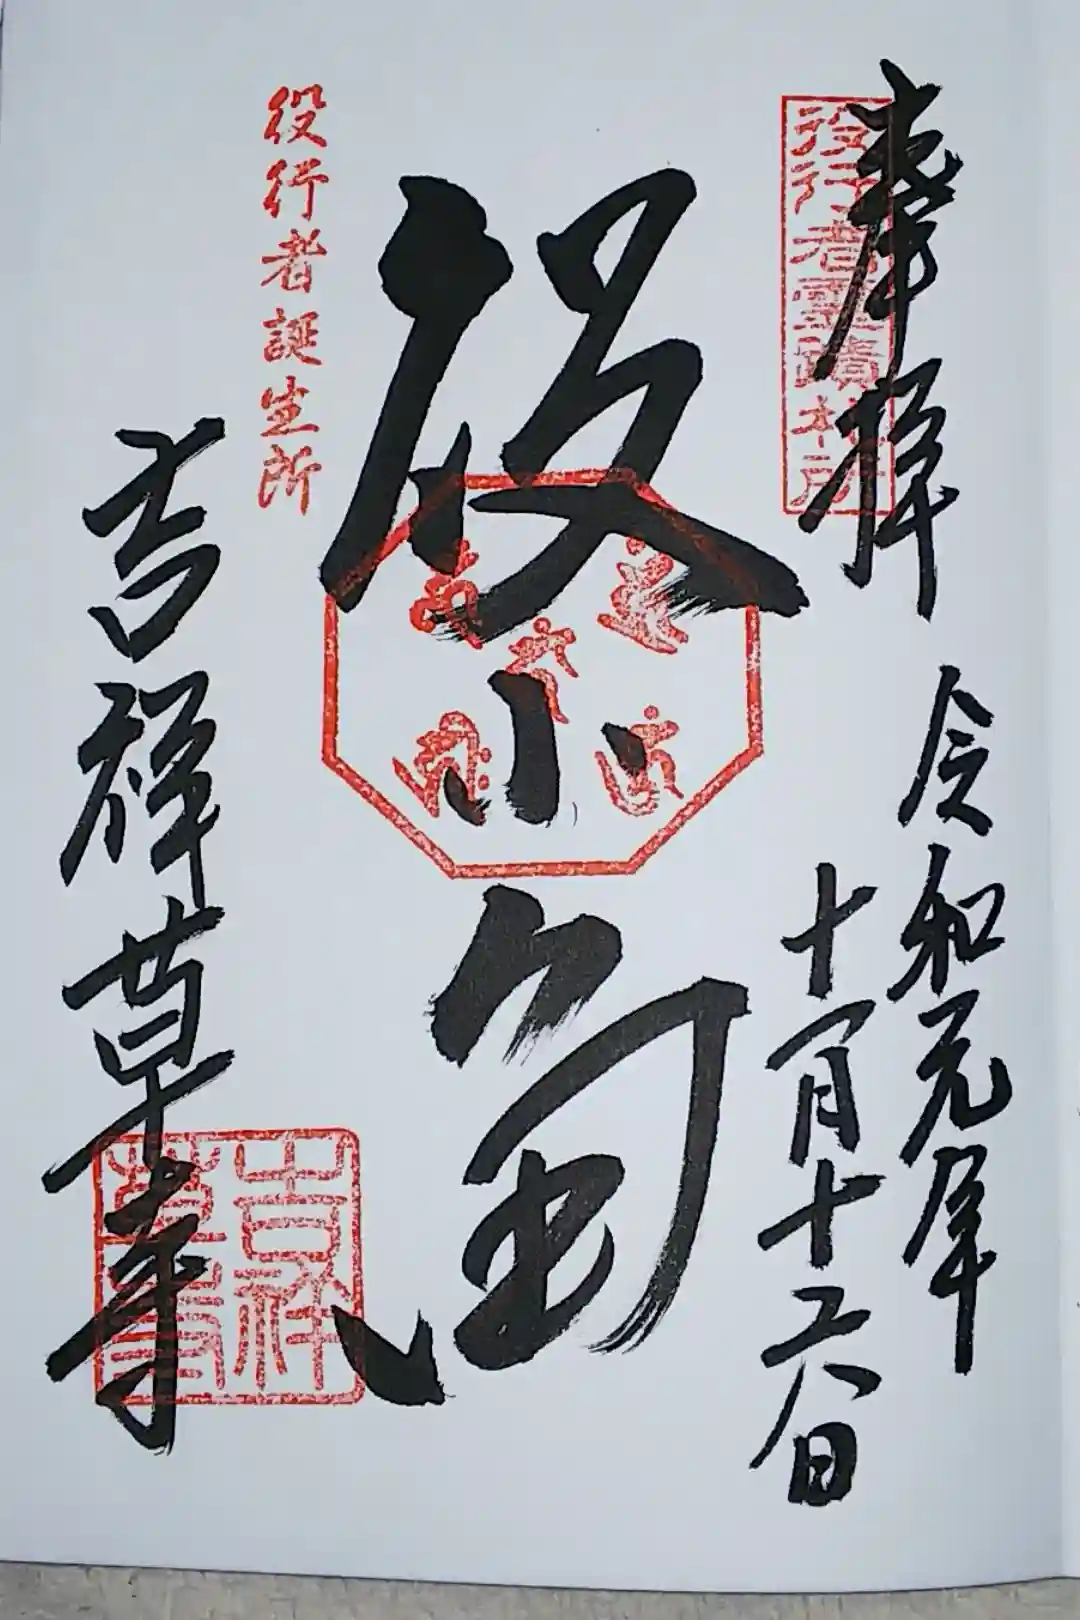 奉拝
役行者霊蹟札所
令和元年
十一月十六日
役小角
役行者誕生所
吉祥草寺
吉祥草寺